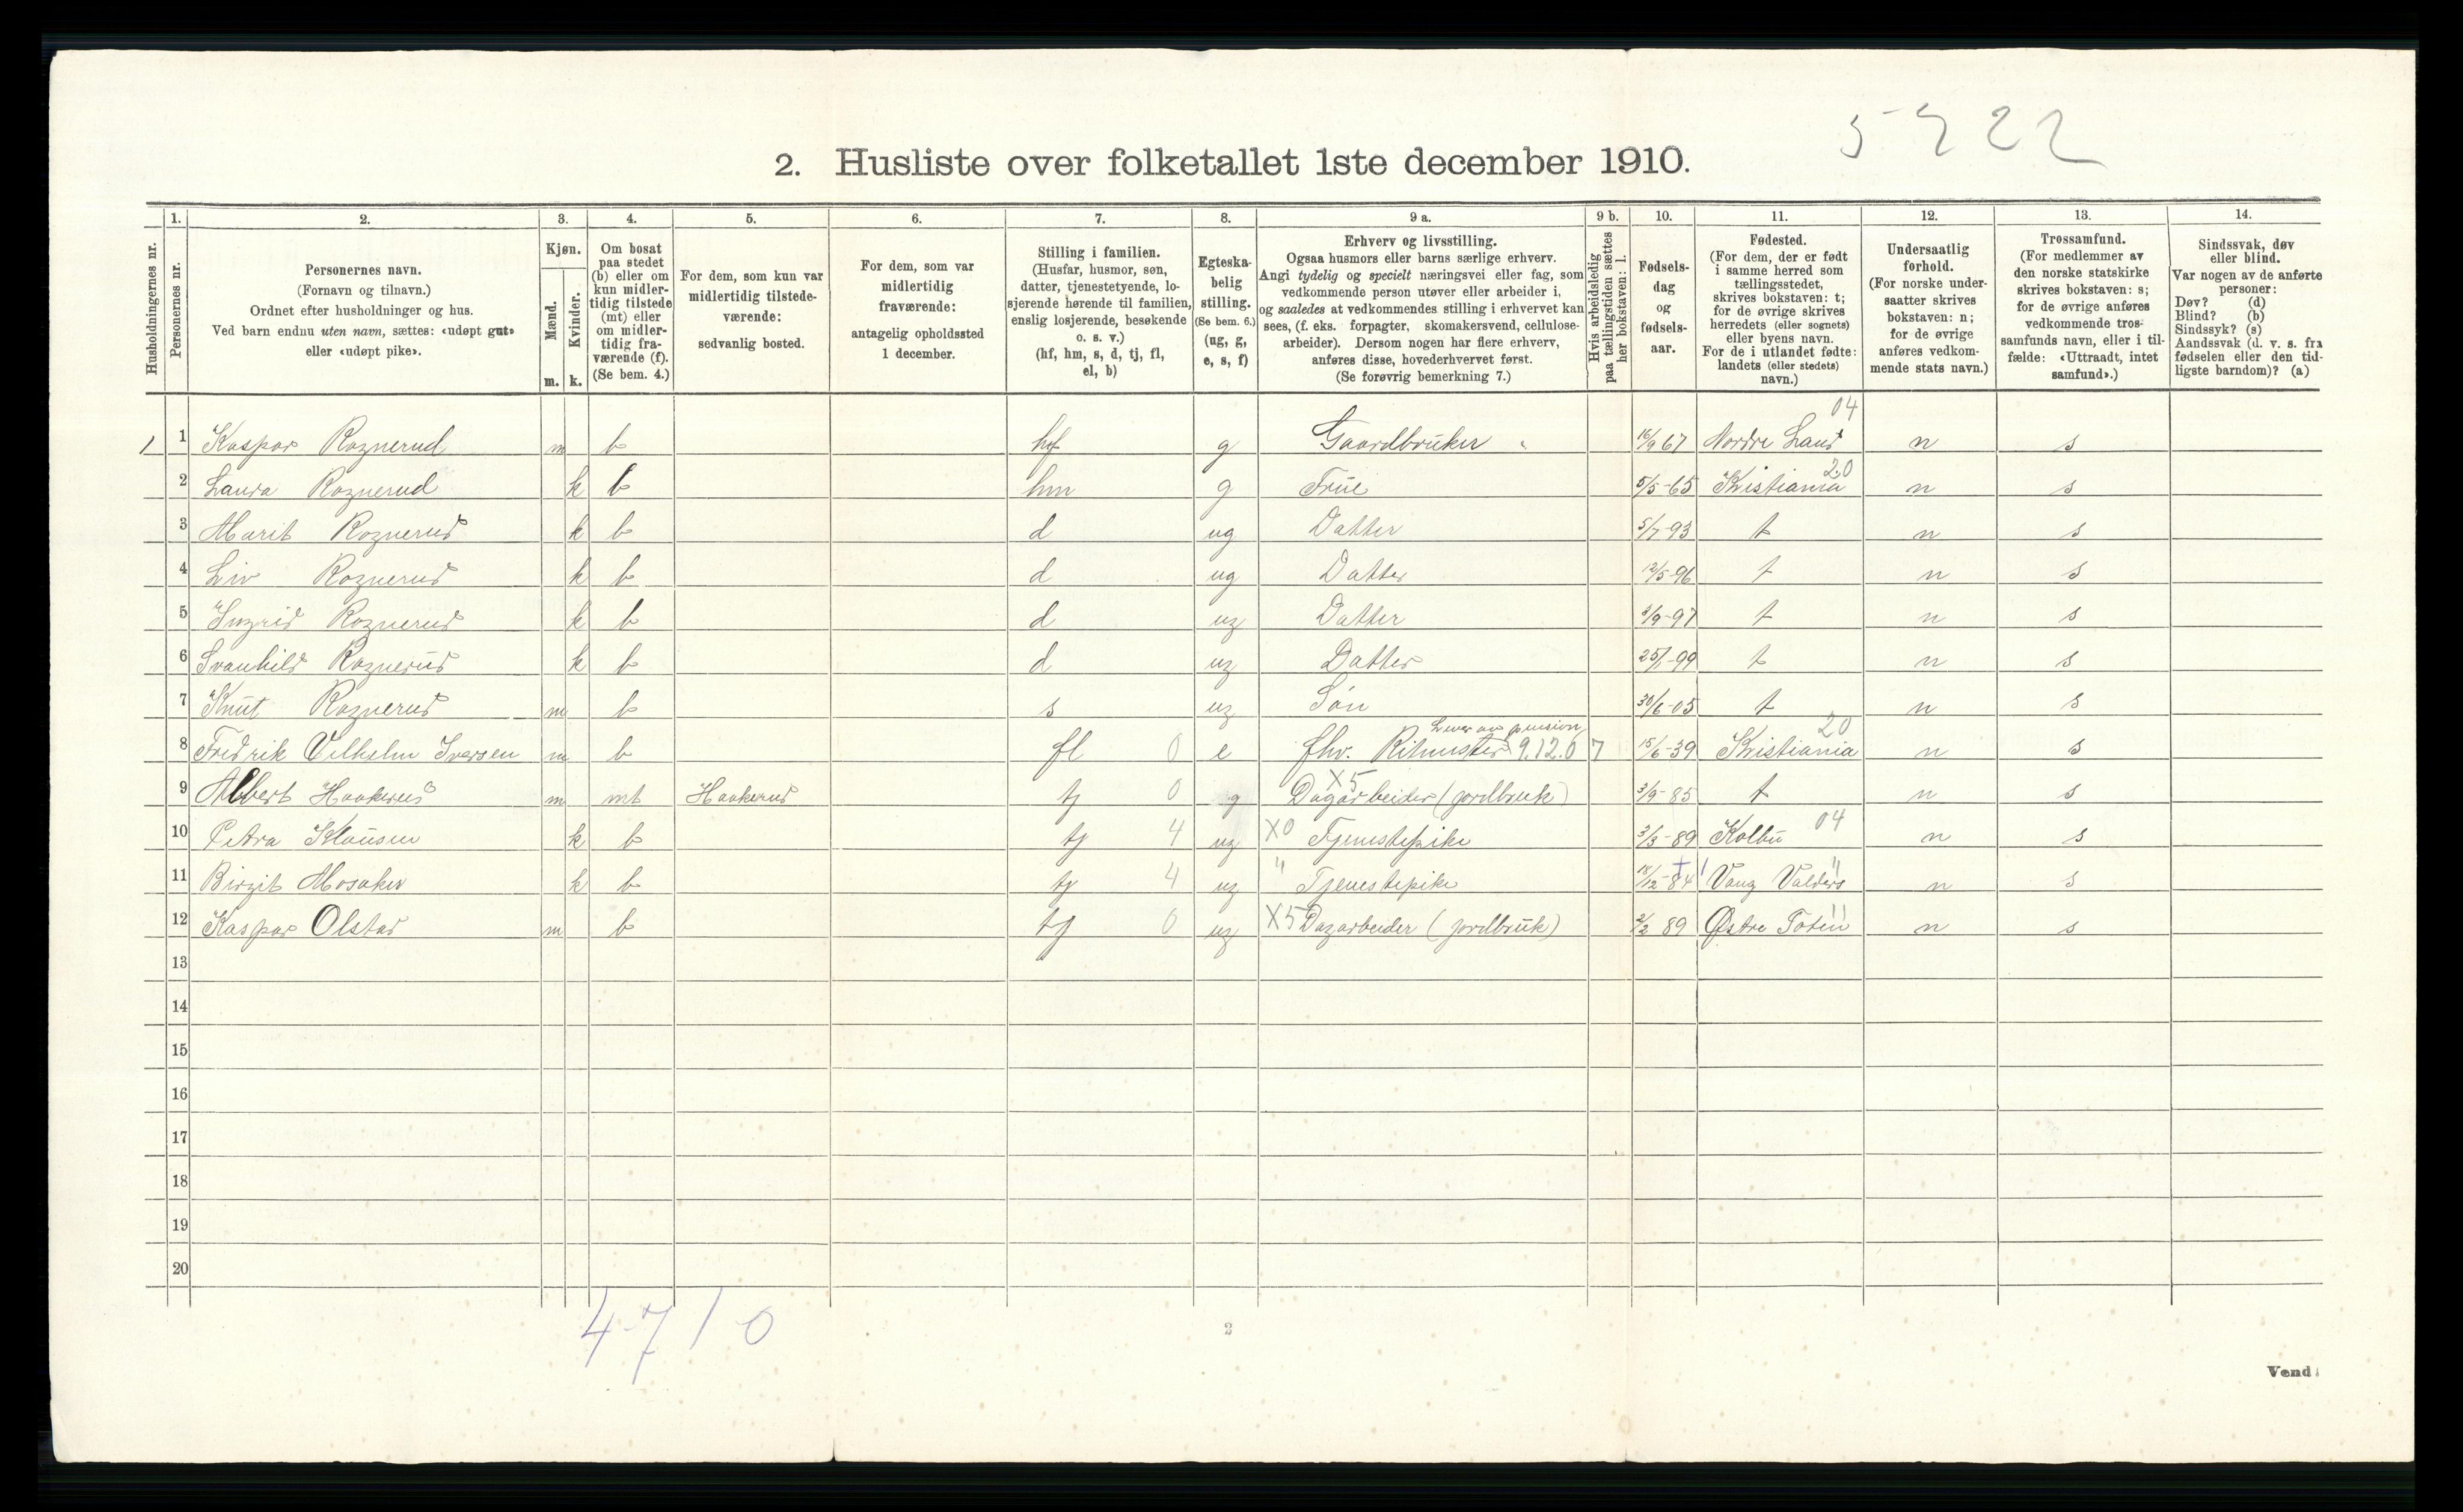 5722
2. Husliste over folketallet 1ste december 1910.
Husholdningernes nr.
1.
Personernes nr.
2.
Personernes navn.
(Fornavn og tilnavn.)
Ordnet efter husholdninger og hus.
Ved barn endnu uten navn, sættes: «udøpt gut»
eller «udøpt pike».
3.
Kjøn.
Mænd.
Kvinder.
m. k.
4.
Om bosat
paa stedet
(b) eller om
kun midler-
tidig tilstede
(mt) eller
om midler-
tidig fra-
værende (f).
(Se bem. 4.)
5.
For dem, som kun var
midlertidig tilstede-
værende:
sedvanlig bosted.
6.
For dem, som var
midlertidig
fraværende:
antagelig opholdssted
1 december.
7.
Stilling i familien.
(Husfar, husmor, søn,
datter, tjenestetyende, lo-
sjerende hørende til familien,
enslig losjerende, besøkende
o. s. v.)
(hf, hm, s, d, tj, fl,
el, b)
8.
Egteska-
belig
stilling.
(Se bem. 6.)
(ug, g,
e, s, f)
9 a.
Erhverv og livsstilling.
Ogsaa husmors eller barns særlige erhverv.
Angi tydelig og specielt næringsvei eller fag, som
vedkommende person utøver eller arbeider i,
og saaledes at vedkommendes stilling i erhvervet kan
sees, (f. eks. forpagter, skomakersvend, cellulose-
arbeider). Dersom nogen har flere erhverv,
anføres disse, hovederhvervet først.
(Se forøvrig bemerkning 7.)
9 b.
Hvis arbeidsledig
paa tællingstiden sættes
her bokstaven: l.
10.
Fødsels-
dag
og
fødsels-
aar.
11.
Fødested.
(For dem, der er født
i samme herred som
tællingsstedet,
skrives bokstaven: t;
for de øvrige skrives
herredets (eller sognets)
eller byens navn.
For de i utlandet fødte:
landets (eller stedets)
navn.)
12.
Undersaatlig
forhold.
(For norske under-
saatter skrives
bokstaven: n;
for de øvrige
anføres vedkom-
mende stats navn.)
13.
Trossamfund.
(For medlemmer av
den norske statskirke
skrives bokstaven: s;
for de øvrige anføres
vedkommende tros-
samfunds navn, eller i til-
fælde: «Uttraadt, intet
samfund».)
14.
Sindssvak, døv
eller blind.
Var nogen av de anførte
personer:
Døv? (d)
Blind? (b)
Sindssyk? (s)
Aandssvak (d. v. s. fra
fødselen eller den tid-
ligste barndom)? (a)
04
1 1 Kaspar Roznerud m b hf g Gaardbruker 16/9 67 Nordre Land n s
20
2 Laura Roznerud k b hm g Frue 5/5-65 Kristiania n s
3 Marit Roznerud k b d ug Datter 5/7-93 t n s
4 Liv Roznerud k b d ug Datter 12/5-96 t n s
5 Ingrid Roznerud k b d ug Datter 3/9-97 t n s
6 Svanhild Roznerud k b d ug Datter 25/1-99 t n s
7 Knut Roznerud m b s ug Søn 30/6-05 t n s
Lever av pension 20
8 Fredrik Vilhelm Iversen m b fl 0 e fhv. Ritmester 9.12.0 7 15/6-39 Kristiania n s
X5
9 Albert Haakerud m mt Haakerud tj 0 g Dagarbeider (jordbruk) 3/9-85 t n s
10 Petra Klausen k b tj 4 ug X0 Tjenestepike 3/3-89 Kolbu 04 n s
11 Birgit Mosaker k b tj 4 ug " Tjenestepike 18/12-84 Vang Valders " n s
12 Kaspar Olstad m b tj 0 ug X5 Dagarbeider (jordbruk) 2/2 89 Østre Toten " n s
13
14
15
16
17
18
19
20
4-7 1 0
2
Vend